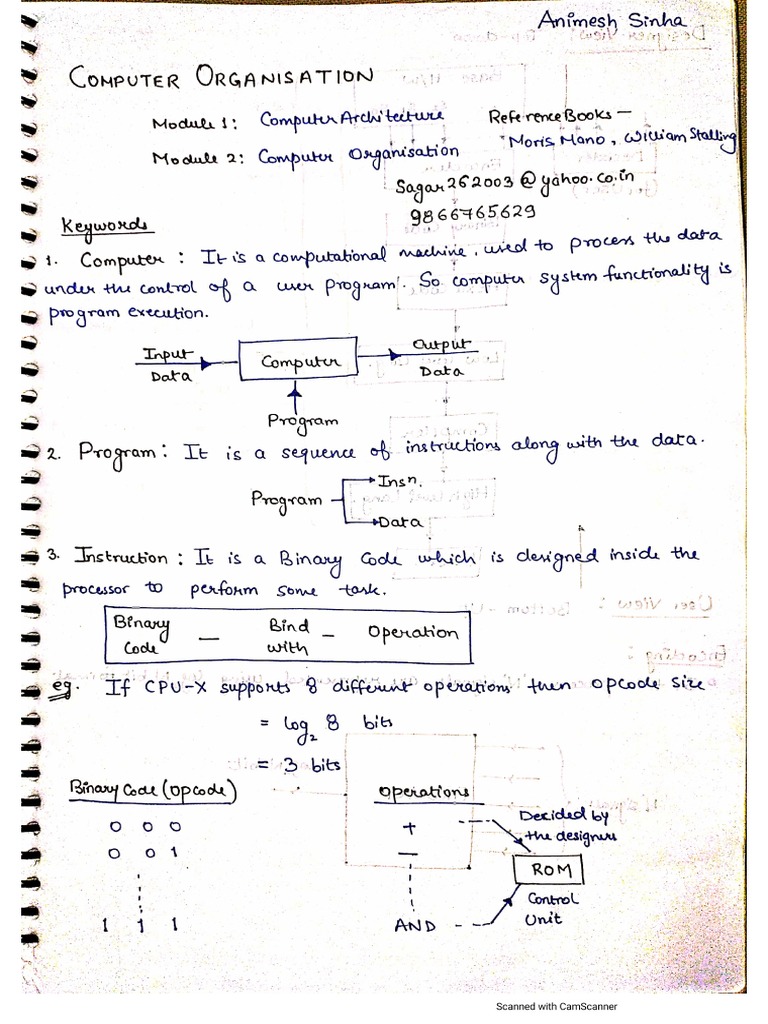 Animesh Sinha
COMPUTER ORGANISATION
Module 1: Computer Architecture
Reference Books —
Module 2: Computer Organisation
Moris Mano, William Stalling
Sagar262003@yahoo.co.in
9866765629
Keywords
1. Computer : It is a computational machine, used to process the data
under the control of a user program. So computer system functionality is
program execution.
Input
Data
Computer
Output
Data
Program
2. Program : It is a sequence of instructions along with the data.
Program
Insn.
Data
3. Instruction : It is a Binary Code which is designed inside the
processor to perform some task.
Binary Code — Bind with — Operation
eg. If CPU-X supports 8 different operations then opcode size
= log₂ 8 bits
= 3 bits
Binary Code (opcode)
Operations
0 0 0
+
Decided by
the designers
0 0 1
—
ROM
Control
Unit
1 1 1
AND
Scanned with CamScanner